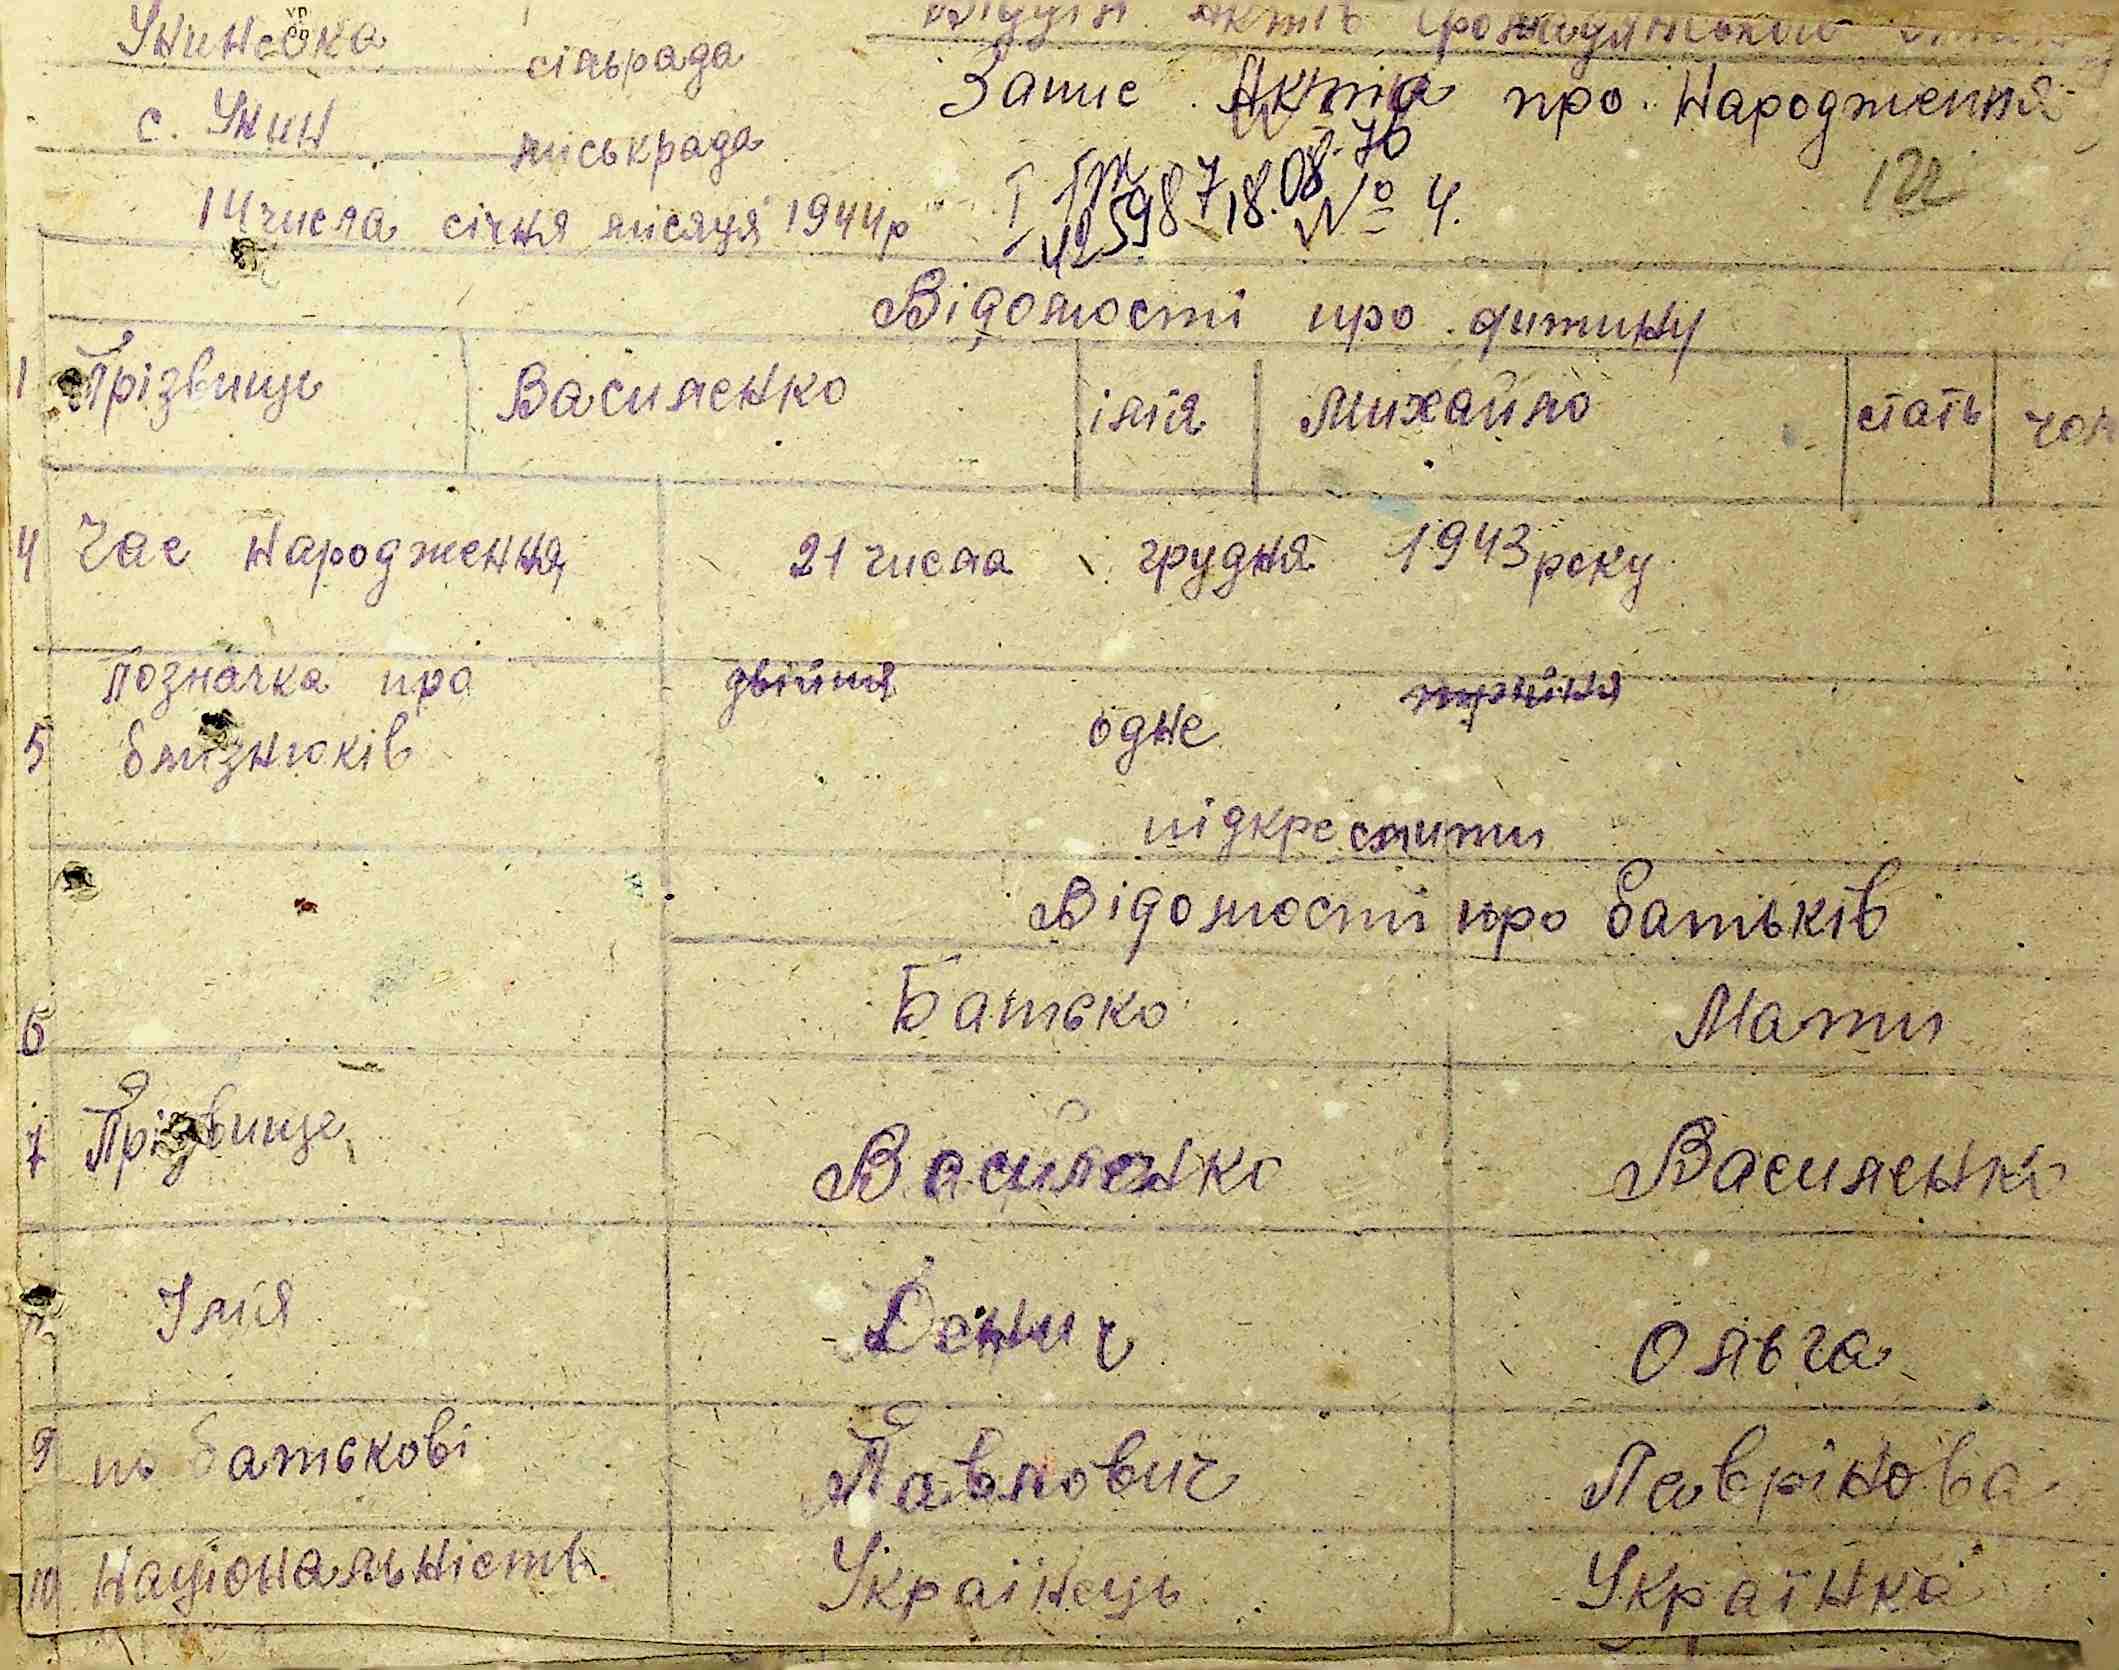 Унинська сільрада
Відділ Актів Громадянського
с. Унин міськрада
Запис Акта про Народження
14 числа січня місяця 1944р
18.08.76
№ 4.
122
Відомості про дитину
1 Прізвище Василенко імія Михайло стать чол
4 Час народження 21 числа грудня 1943 року
Позначка про двійня трийня
5 близнюків одне
підкреслити
Відомості про батьків
6 Батько Мати
7 Прізвище Василенко Василенко
Імія Денис Ольга
9 по батькові Павлович Лаврінова
10 Національність Українець Українка